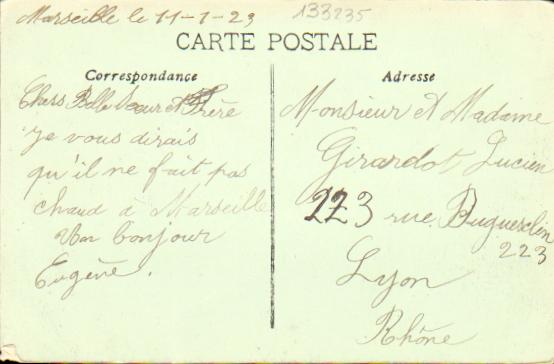 Marseille le 11-1-23
133235
CARTE POSTALE
Correspondance
Chers Belle Soeur et Frère
Je vous dirais
qu'il ne fait pas
chaud à Marseille
Un bonjour
Eugène.
Adresse
Monsieur et Madame
Girardot Lucien
223 rue Duguesclin
223
Lyon
Rhône